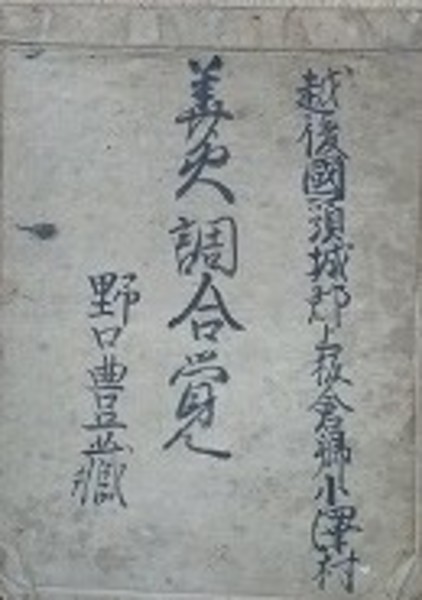 越後國頸城郡上板倉郷小澤村
火調合覚
野口豊藏